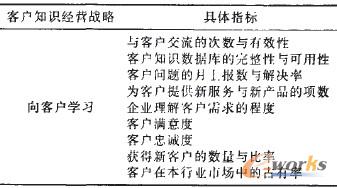 客户知识经营战略 具体指标
与客户交流的次数与有效性
客户知识数据库的完整性与可用性
客户问题的月上报数与解决率
为客户提供新服务与新产品的项数
向客户学习
企业理解客户需求的程度
客户满意度
客户忠诚度
获得新客户的数量与比率
客户在本行业市场中的占有率
works